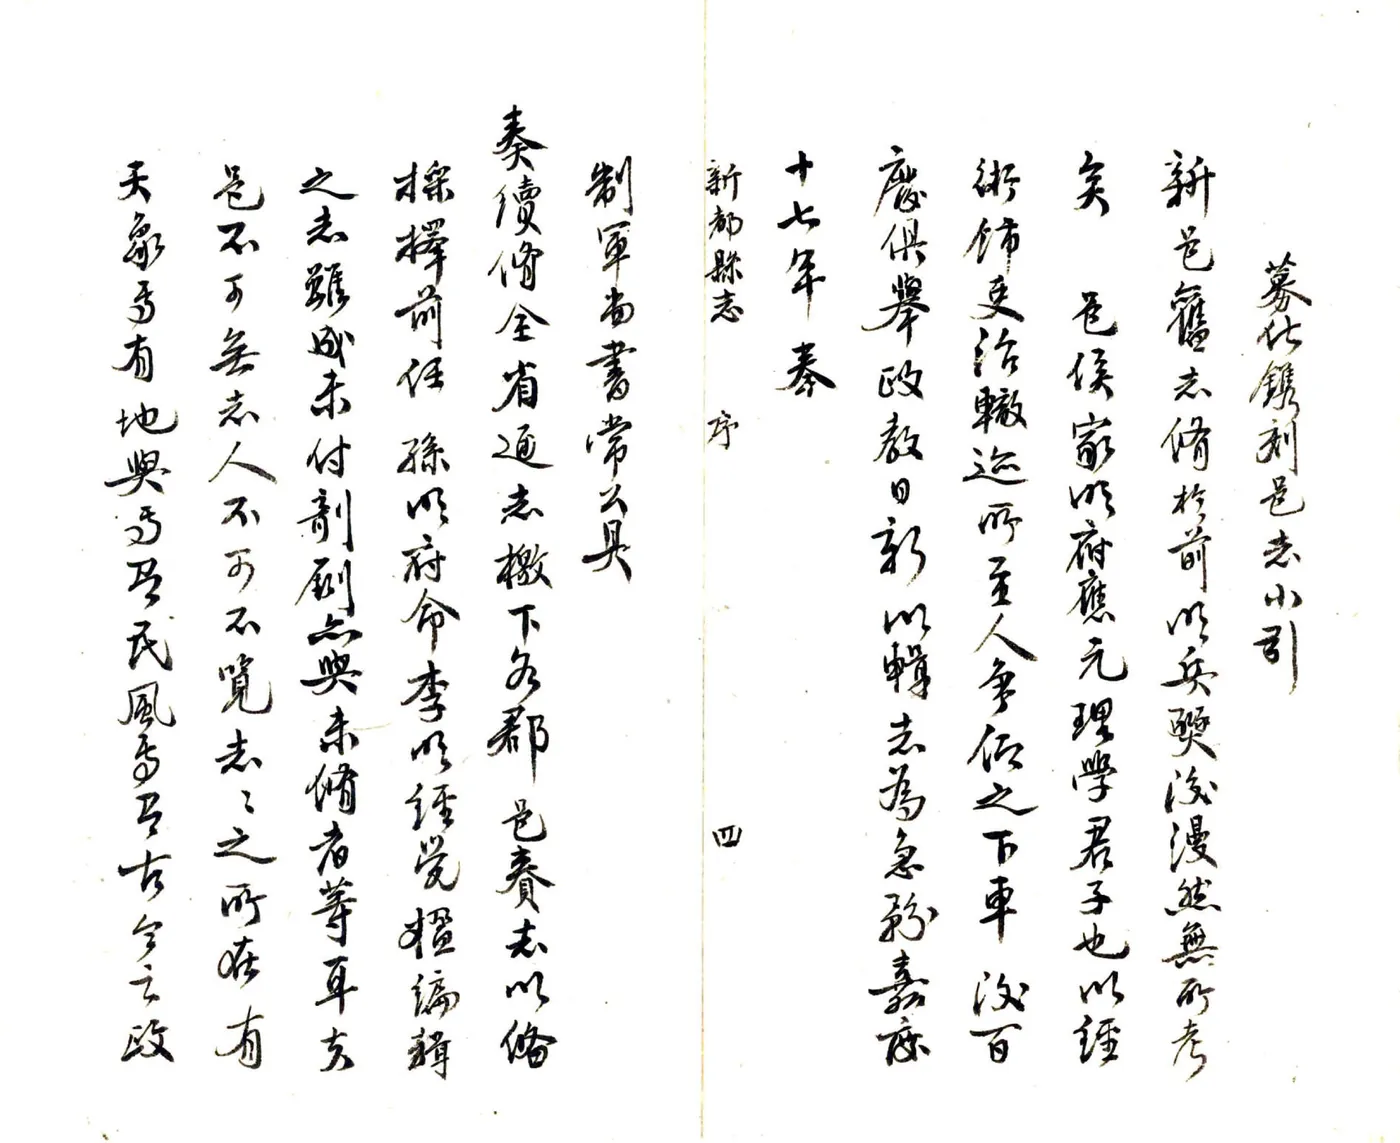 募化鐫刻邑志小引
新邑舊志脩於前明兵燹後漫然無所考
矣 邑侯家明府應元理學君子也以經
術飾吏治轍迹所至人爭仰之下車後百
廢俱舉政教日新以輯志為急務嘉慶
十七年奉
新都縣志 序 四
制軍尚書常公具
奏續脩全省通志檄下各郡邑賫志以備
採擇前任孫明府命李明經覺楹編輯
之志雖成未付剞劂亦與未脩者等耳夫
邑不可無志人不可不覽志〻之所在有
天象焉有地輿焉有民風焉有古今之政